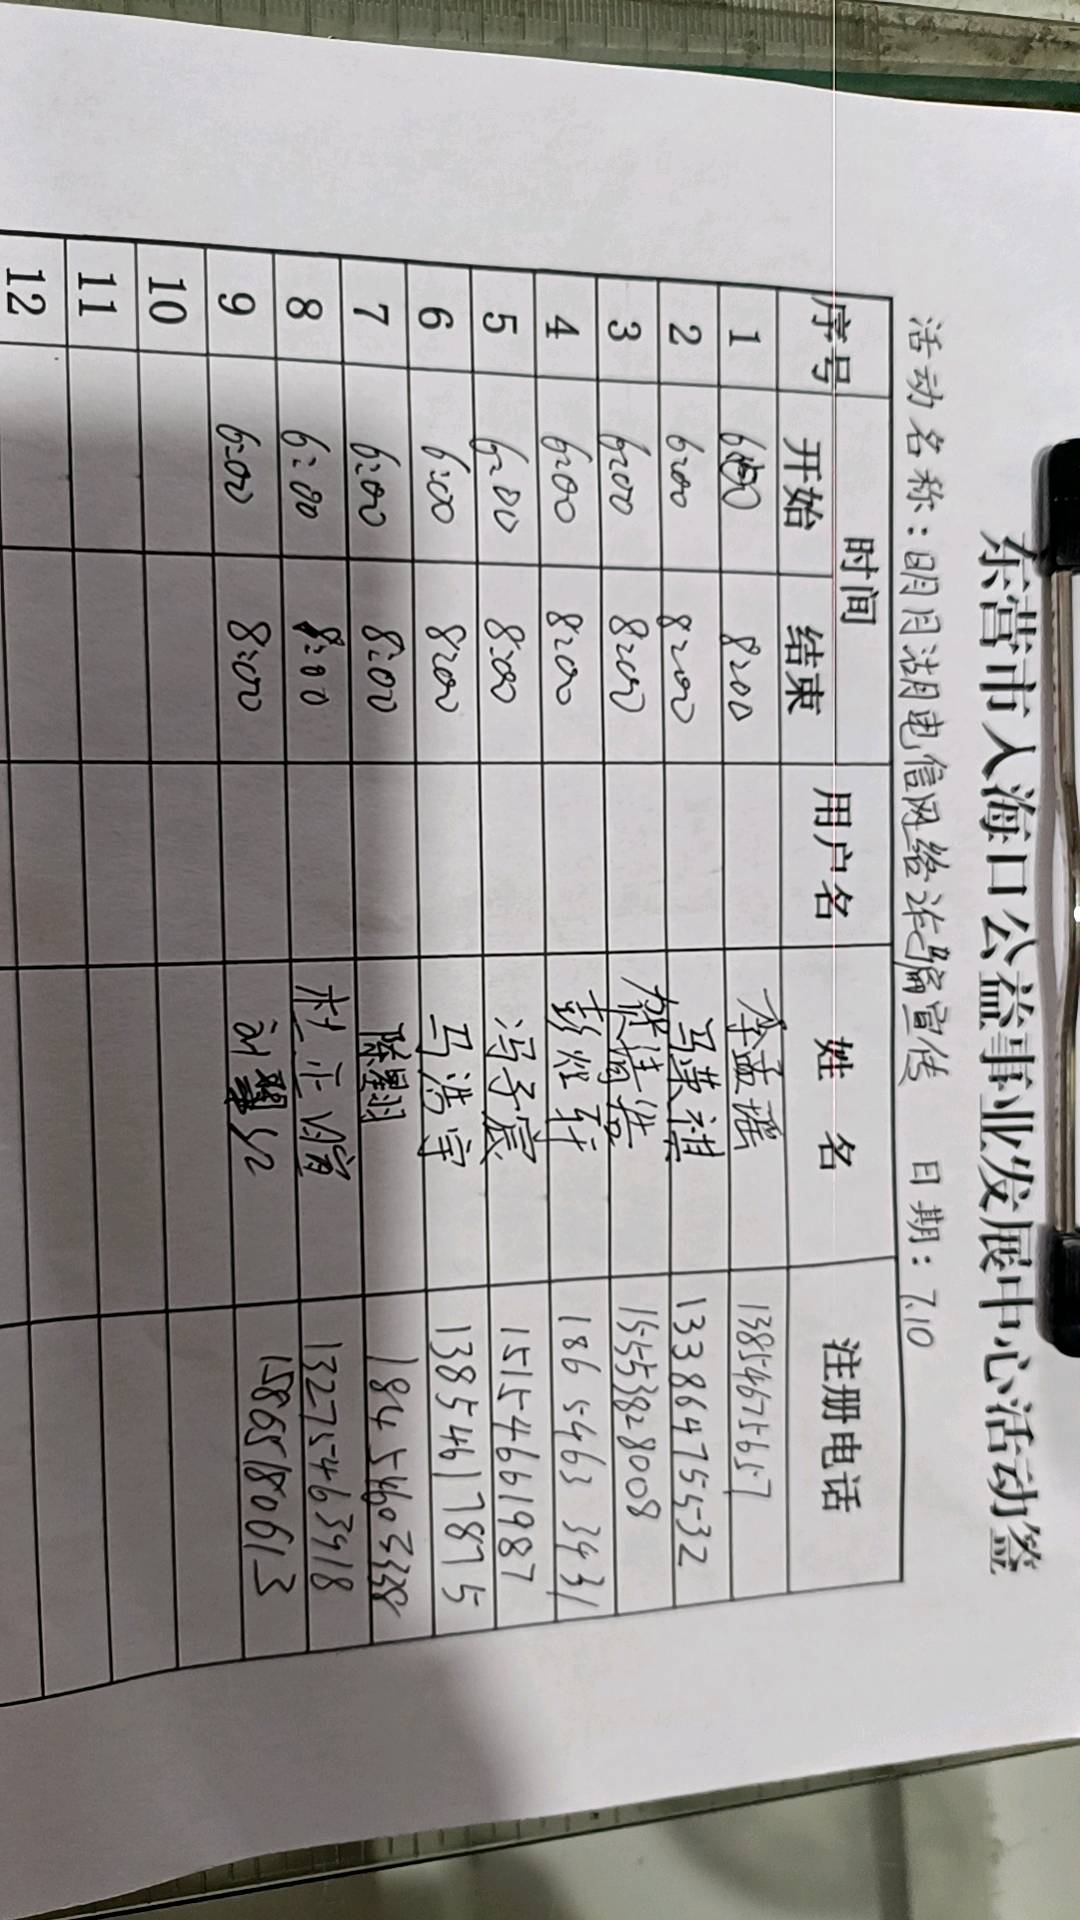 东营市入海口公益事业发展中心活动签
活动名称：明月湖电信网络诈骗宣传 日期：7.10
序号 时间 用户名 姓名 注册电话
开始 结束
1 6:00 8:00 李孟瑶 13854675657
2 6:00 8:00 马燕祺 13386475532
3 6:00 8:00 15553828008
4 6:00 8:00 彭煜轩 18654633431
5 6:00 8:00 冯子宸 15154661987
6 6:00 8:00 马浩宇 13854617875
7 6:00 8:00 陈翾 18454603338
8 6:00 8:00 杜正 13275463418
9 6:00 8:00 15865180613
10
11
12